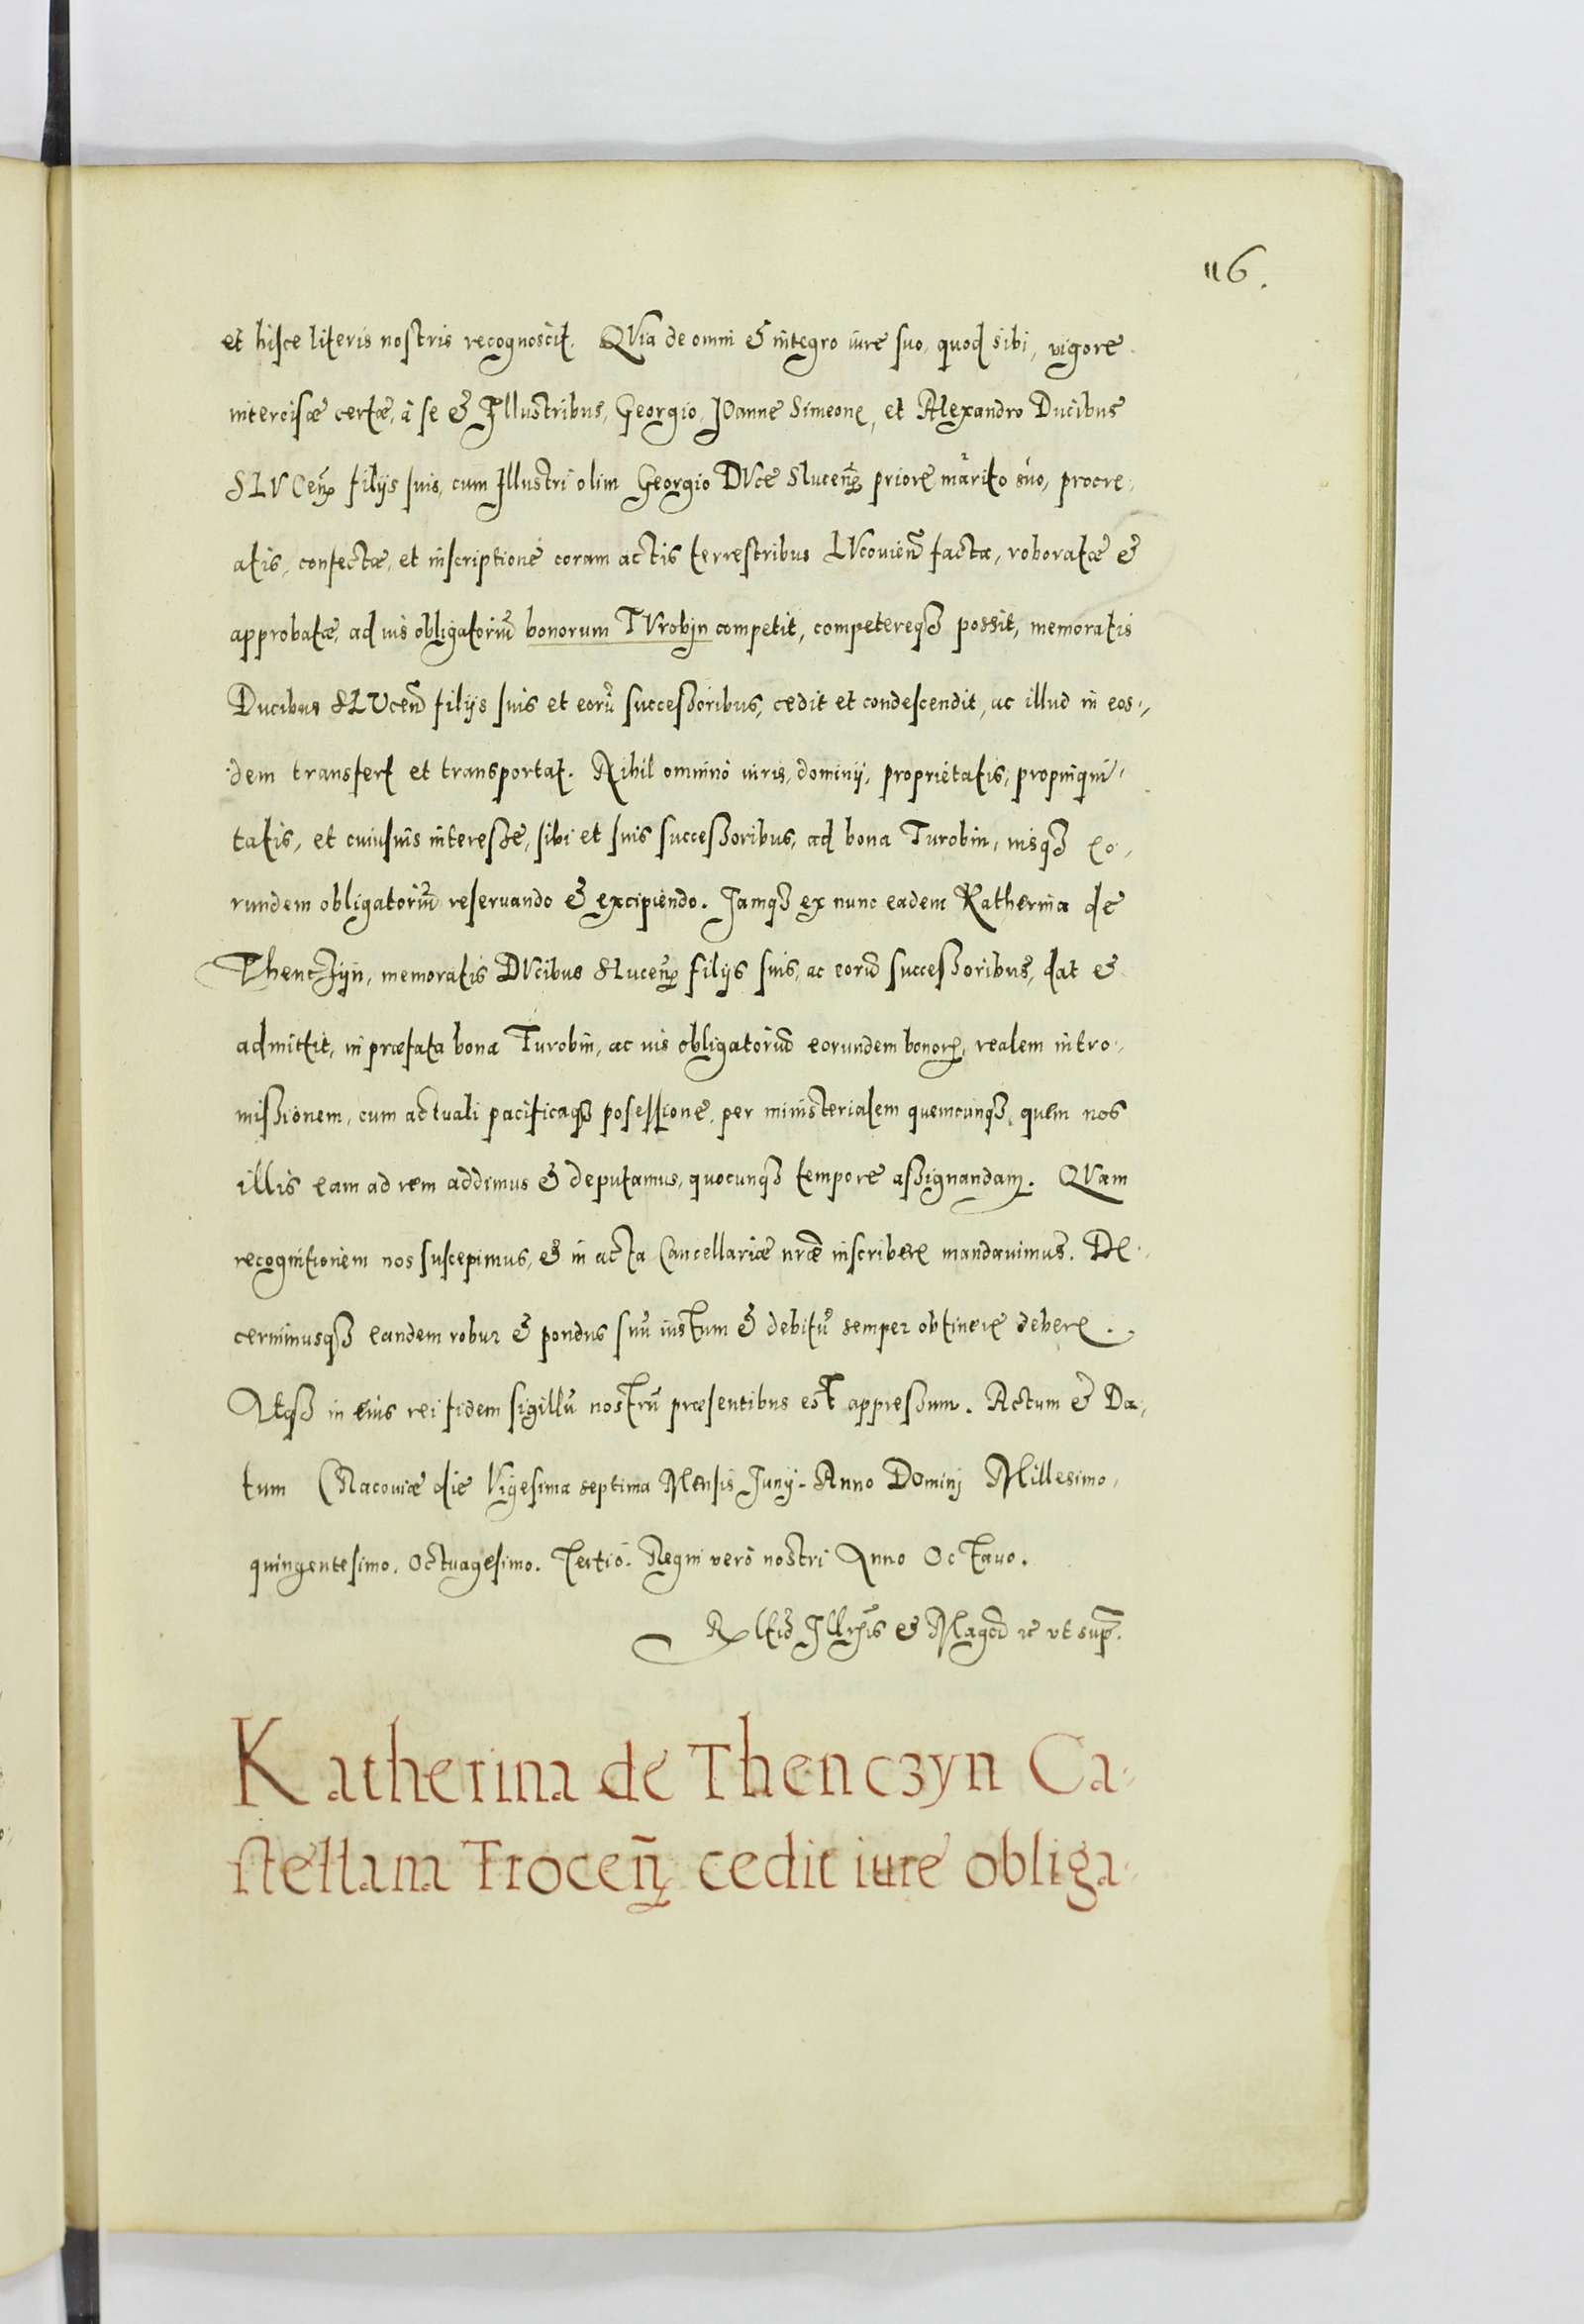 116.
et hisce literis nostris recognoscit. QVia de omni & integro iure suo, quod sibi, vigore
intercisæ certæ, à se & Illustribus, Georgio, IOanne Simeone, et Alexandro Ducibus
SLVCeñ filijs suis, cum Illustri olim Georgio DVce Sluceñ priore marito suo, procre,
atis, confectæ, et inscriptione coram actis terrestribus LVcovieñ factæ, roboratæ &
approbatæ, ad ius obligatoriũ bonorum TVrobin competit, competereqȝ possit, memoratis
Ducibus SLVceñ filijs suis et eorũ successoribus, cedit et condescendit, ac illud in eos,,
dem transfert et transportat. Nihil omnino iuris, dominij, proprietatis, propinqui,
tatis, et cuiusuis interesse, sibi et suis successoribus, ad bona Turobin, iusqȝ eo,
rundem obligatoriũ reseruando & excipiendo. Iamqȝ ex nunc eadem Katherina de
Thenczyn, memoratis DVcibus Sluceñ filijs suis, ac eorũ successoribus, dat &
admittit, in præfata bona Turobin, ac ius obligatoriũ eorundem bonorꝝ, realem intro,
missionem, cum actuali pacificaqȝ posessione, per ministerialem quemcunqȝ, quem nos
illis eam ad rem addimus & deputamus, quocunqȝ tempore assignandam. QVam
recognitionem nos suscepimus, & in acta Cancellariæ nr̃æ inscribere mandauimus. De,
cernimusqȝ eandem robur & pondus suũ iustum & debitũ semper obtinere debere.
Atqȝ in eius rei fidem sigillũ nostrũ præsentibus est appressum. Actum & Da,
tum CRacoviæ die Vigesima septima Mensis Iunij. Anno DOmini Millesimo,
quingentesimo, Octuagesimo. Tertio. Regni verò nostri Anno OcTauo.
& Mag͠cd ut sup̃.
Katherina de Thenczyn Ca,
stellana Troceñ cedit iure obliga,